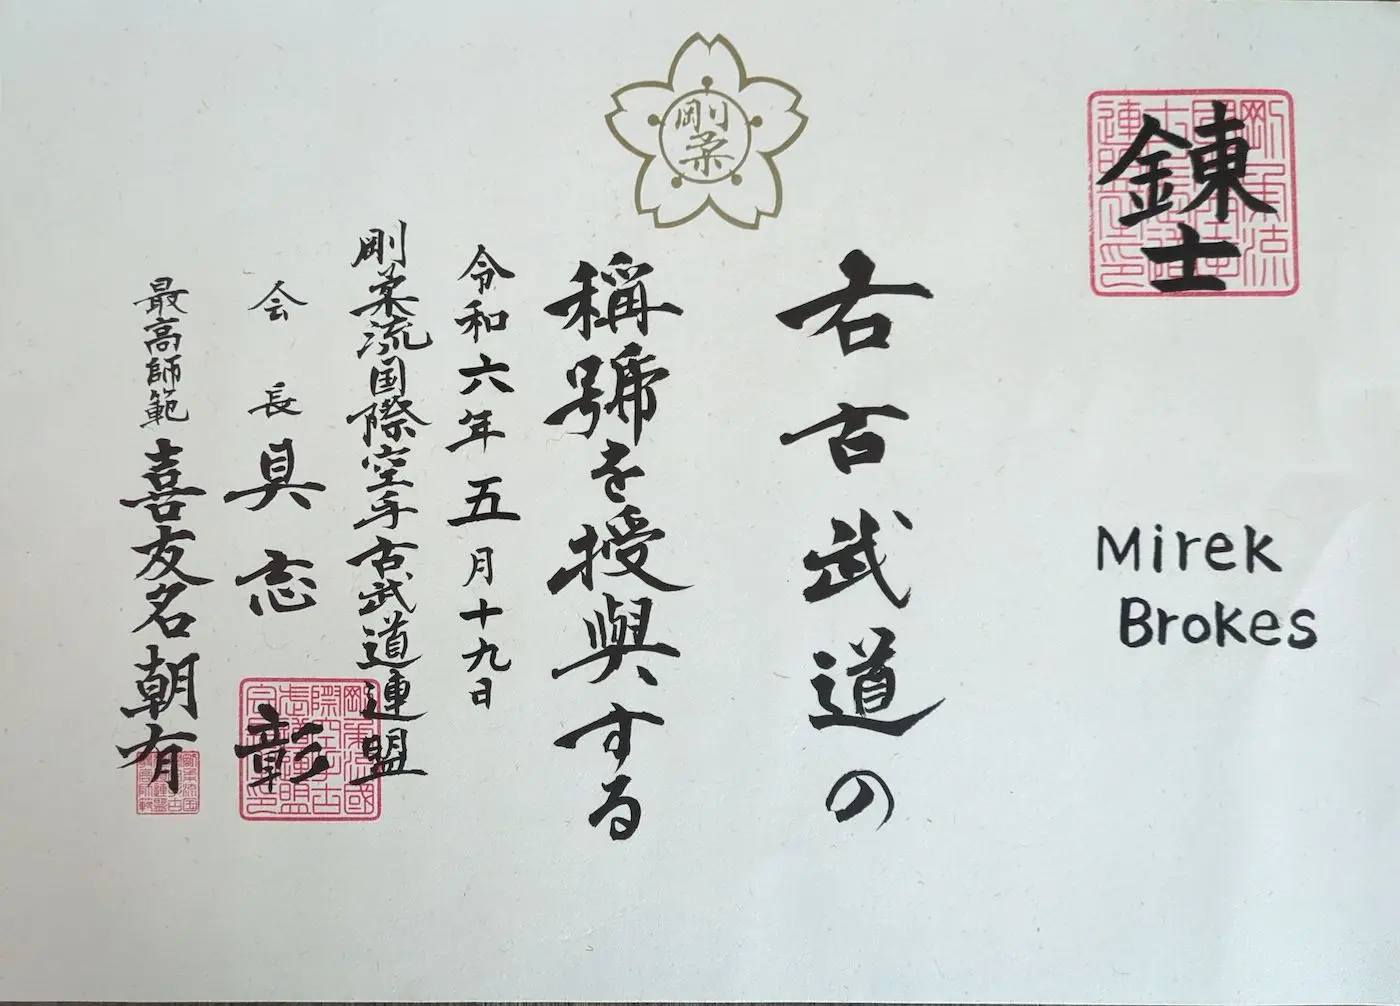 錬士
Mirek
Brokes
右古武道の
剛柔
稱號を授與する
令和六年五月十九日
剛柔流国際空手古武道連盟
会長 具志 彰
最高師範 喜友名朝有